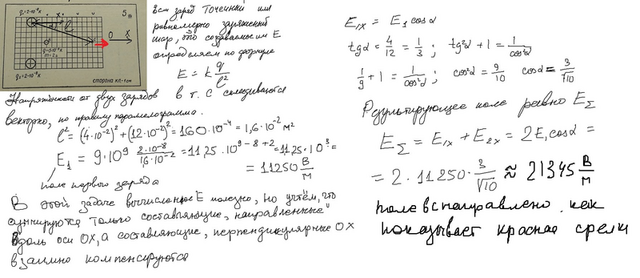 5в
0 X
сторона кл-1см
если заряд точечный или
равномерно заряженный
шар, то создаваемым E
определяем по формуле
E = k q/ℓ²
Напряжённости от двух зарядов
в т. С складываются
векторно, по правилу параллелограмма.
ℓ² = (4·10⁻²)² + (12·10⁻²)² = 160·10⁻⁴ = 1,6·10⁻² м²
E₁ = 9·10⁹ 2·10⁻⁸/1,6·10⁻² = 11,25·10⁹⁻⁸⁺² = 11,25·10³ =
= 11250 В/м
поле первого заряда
В этой задаче вычисление E полезно, но учтём, что
суммируются только составляющие, направленные
вдоль оси OX, а составляющие, перпендикулярные OX
взаимно компенсируются
E₁ₓ = E₁cosα
tgα = 4/12 = 1/3 ; tg²α + 1 = 1/cos²α
1/9 + 1 = 1/cos²α ; cos²α = 9/10 cosα = 3/√10
Результирующее поле равно E_Σ
E_Σ = E₁ₓ + E₂ₓ = 2E₁cosα =
= 2·11250·3/√10 ≈ 21345 В/м
поле направлено, как
показывает красная стрелка